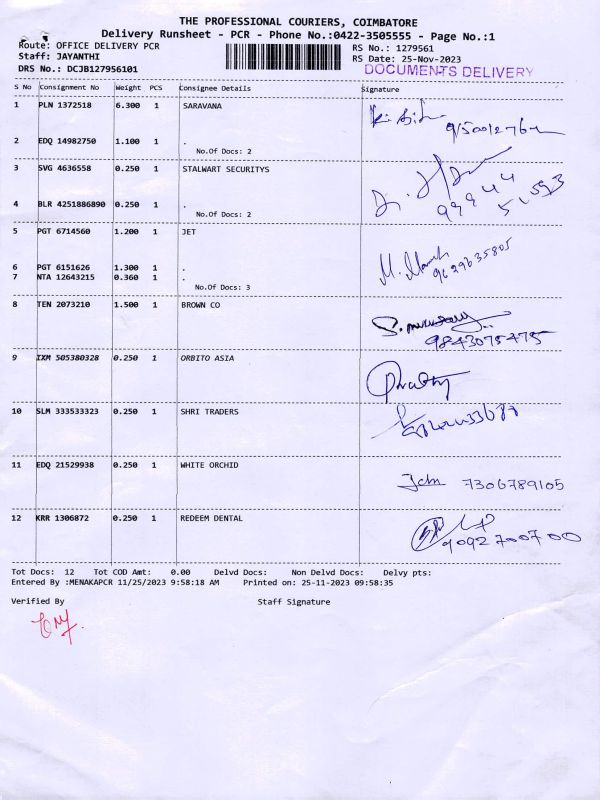 THE PROFESSIONAL COURIERS, COIMBATORE
Delivery Runsheet - PCR - Phone No.:0422-3505555 - Page No.:1
Route: OFFICE DELIVERY PCR RS No.: 1279561
Staff: JAYANTHI RS Date: 25-Nov-2023
DRS No.: DCJB127956101 DOCUMENTS DELIVERY
S No Consignment No Weight PCS Consignee Details Signature
1 PLN 1372518 6.300 1 SARAVANA
2 EDQ 14982750 1.100 1 .
No.Of Docs: 2
3 SVG 4636558 0.250 1 STALWART SECURITYS
4 BLR 4251886890 0.250 1 .
No.Of Docs: 2
5 PGT 6714560 1.200 1 JET
9629635805
6 PGT 6151626 1.300 1 .
7 NTA 12643215 0.360 1 .
No.Of Docs: 3
8 TEN 2073210 1.500 1 BROWN CO
9843075475
9 IXM 505380328 0.250 1 ORBITO ASIA
10 SLM 333533323 0.250 1 SHRI TRADERS
11 EDQ 21529938 0.250 1 WHITE ORCHID
John 7306789105
12 KRR 1306872 0.250 1 REDEEM DENTAL
9092700700
Tot Docs: 12 Tot COD Amt: 0.00 Delvd Docs: Non Delvd Docs: Delvy pts:
Entered By :MENAKAPCR 11/25/2023 9:58:18 AM Printed on: 25-11-2023 09:58:35
Verified By Staff Signature